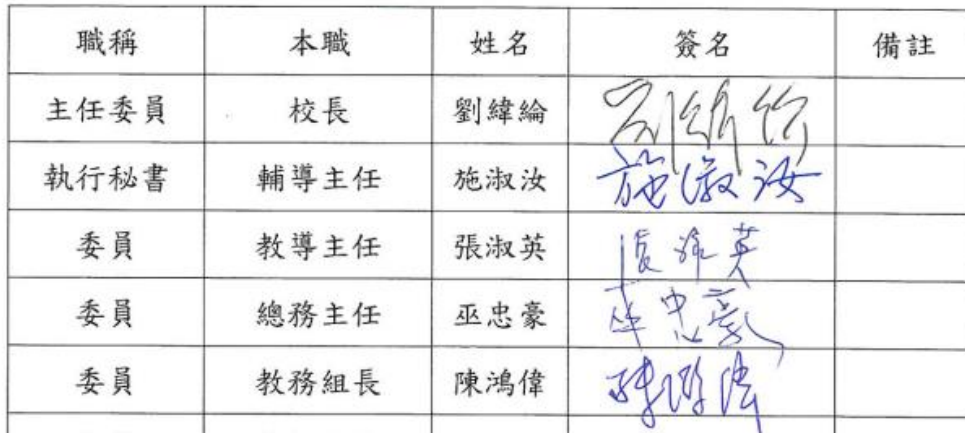 職稱 本職 姓名 簽名 備註
主任委員 校長 劉緯綸
執行秘書 輔導主任 施淑汝 施淑汝
委員 教導主任 張淑英 張淑英
委員 總務主任 巫忠豪 巫忠豪
委員 教務組長 陳鴻偉